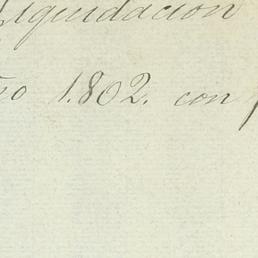 Liquidacion
ño 1.802. con